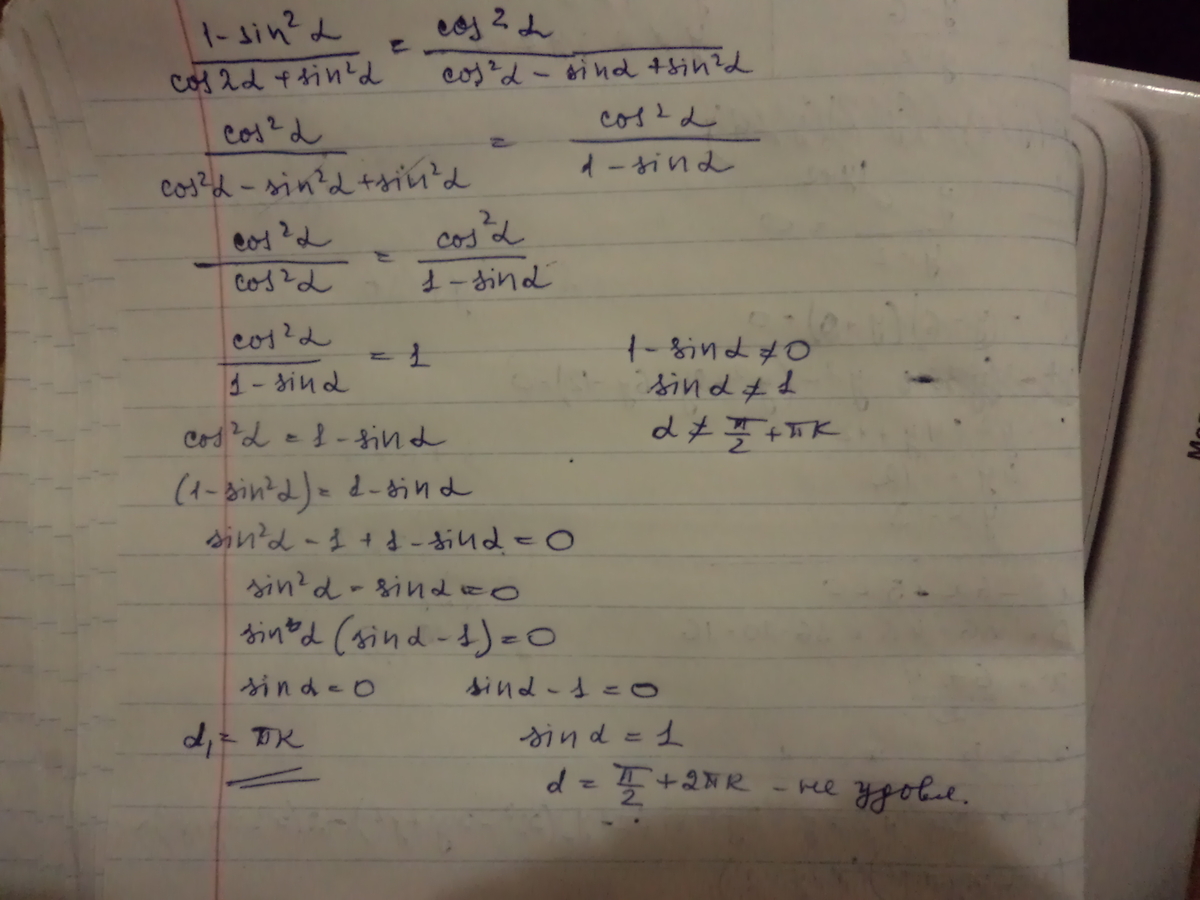 (1-sin²α)/(cos2α+sin²α) = cos²α/(cos²α-sinα+sin²α)
cos²α/(cos²α-sin²α+sin²α) = cos²α/(1-sinα)
cos²α/cos²α = cos²α/(1-sinα)
cos²α/(1-sinα) = 1
1-sinα≠0
sinα≠1
α≠π/2+πк
cos²α=1-sinα
(1-sin²α)=1-sinα
sin²α-1+1-sinα=0
sin²α-sinα=0
sinα(sinα-1)=0
sinα=0 sinα-1=0
α₁=πк sinα=1
α=π/2+2πк - не удовл.